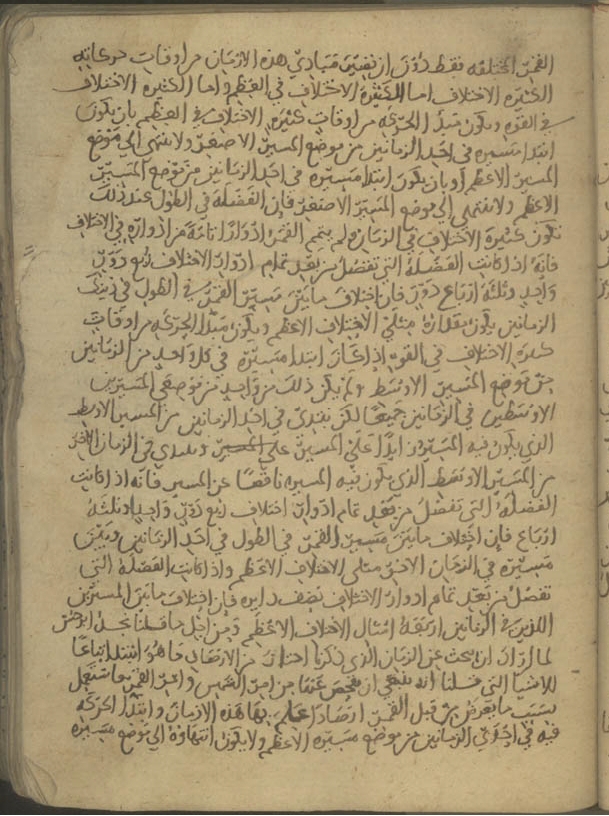 القمر المختلفه فقط دون ان نفيس مبادي هذه الازمان من اوقات حركاته
الكثيره الاختلاف اما الكثيره الاختلاف في العظم واما الكثيره الاختلاف
في القوه ويكون مبدا الحركه من اوقات كثيره الاختلاف في العظم بان يكون
ابتدا مسيره في احد الزمانين من موضع المسير الاصغر ولا ينتهي الي موضع
المسير الاعظم او بان يكون ابتدا مسيره في احد الزمانين من موضع المسير
الاعظم ولا ينتهي الي موضع المسير الاصغر فان الفضله في الطول عند ذلك
تكون كثيرة الاختلاف في الزمان ولم يتمم القمر ادوارا تامه من ادواره في الاختلاف
فانه اذا كانت الفضلة التي تفضل من بعد تمام ادوار الاختلاف ربع دور
واحد وثلثه ارباع دور فان اختلاف ما بين مسير القمر في الطول في ذينك
الزمانين يكون بمقدار مثلي الاختلاف الاعظم ويكون مبدا الحركه من اوقات
كثيره الاختلاف في القوه اذا كان ابتدا مسيره في كل واحد من الزمانين
من موضع المسير الاوسط ولم يكن ذلك من واحد من موضعي المسيرين
الاوسطين في الزمانين جميعا لكن يبتدي في احد الزمانين من المسير الاوسط
الذي يكون فيه المسير زايدا علي المسير ويبتدي في الزمان الاخر
من المسير الاوسط الذي يكون فيه المسير ناقصا عن المسير فانه اذا كانت
الفضله التي تفضل من بعد تمام ادوار اختلاف ربع دور واحد او ثلثه
ارباع فان اختلاف ما بين مسير القمر في الطول في احد الزمانين وبين
مسيره في الزمان الاخر مثلي الاختلاف الاعظم واذا كانت الفضله التي
تفضل من بعد تمام ادوار الاختلاف نصف دايره فان اختلاف ما بين المسيرين
اللذين في الزمانين اربعه امثال الاختلاف الاعظم ومن اجل ما قلنا نجد ابرخس
لما اراد ان يبحث عن الزمان الذي ذكرنا اختار من الارصاد ما هو اشد اتباعا
للاشيا التي قلنا انه ينبغي ان يفحص عنها من امر الشمس وامر القمر فاستعمل
بسبب ما يعرض من قبل القمر ارصادا علم بها هذه الازمان وابتدا الحركه
فيه في احدي الزمانين من موضع مسيره الاعظم ولا يكون انتهاؤه الي موضع مسيره